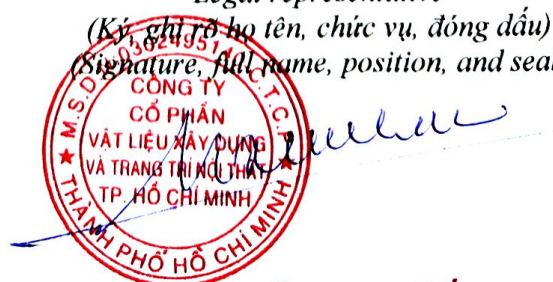 Legal representative
(Ký, ghi rõ họ tên, chức vụ, đóng dấu)
(Signature, full name, position, and seal
CÔNG TY
CỔ PHẦN
VẬT LIỆU XÂY DỰNG
VÀ TRANG TRÍ NỘI THẤT
TP. HỒ CHÍ MINH
THÀNH PHỐ HỒ CHÍ MINH